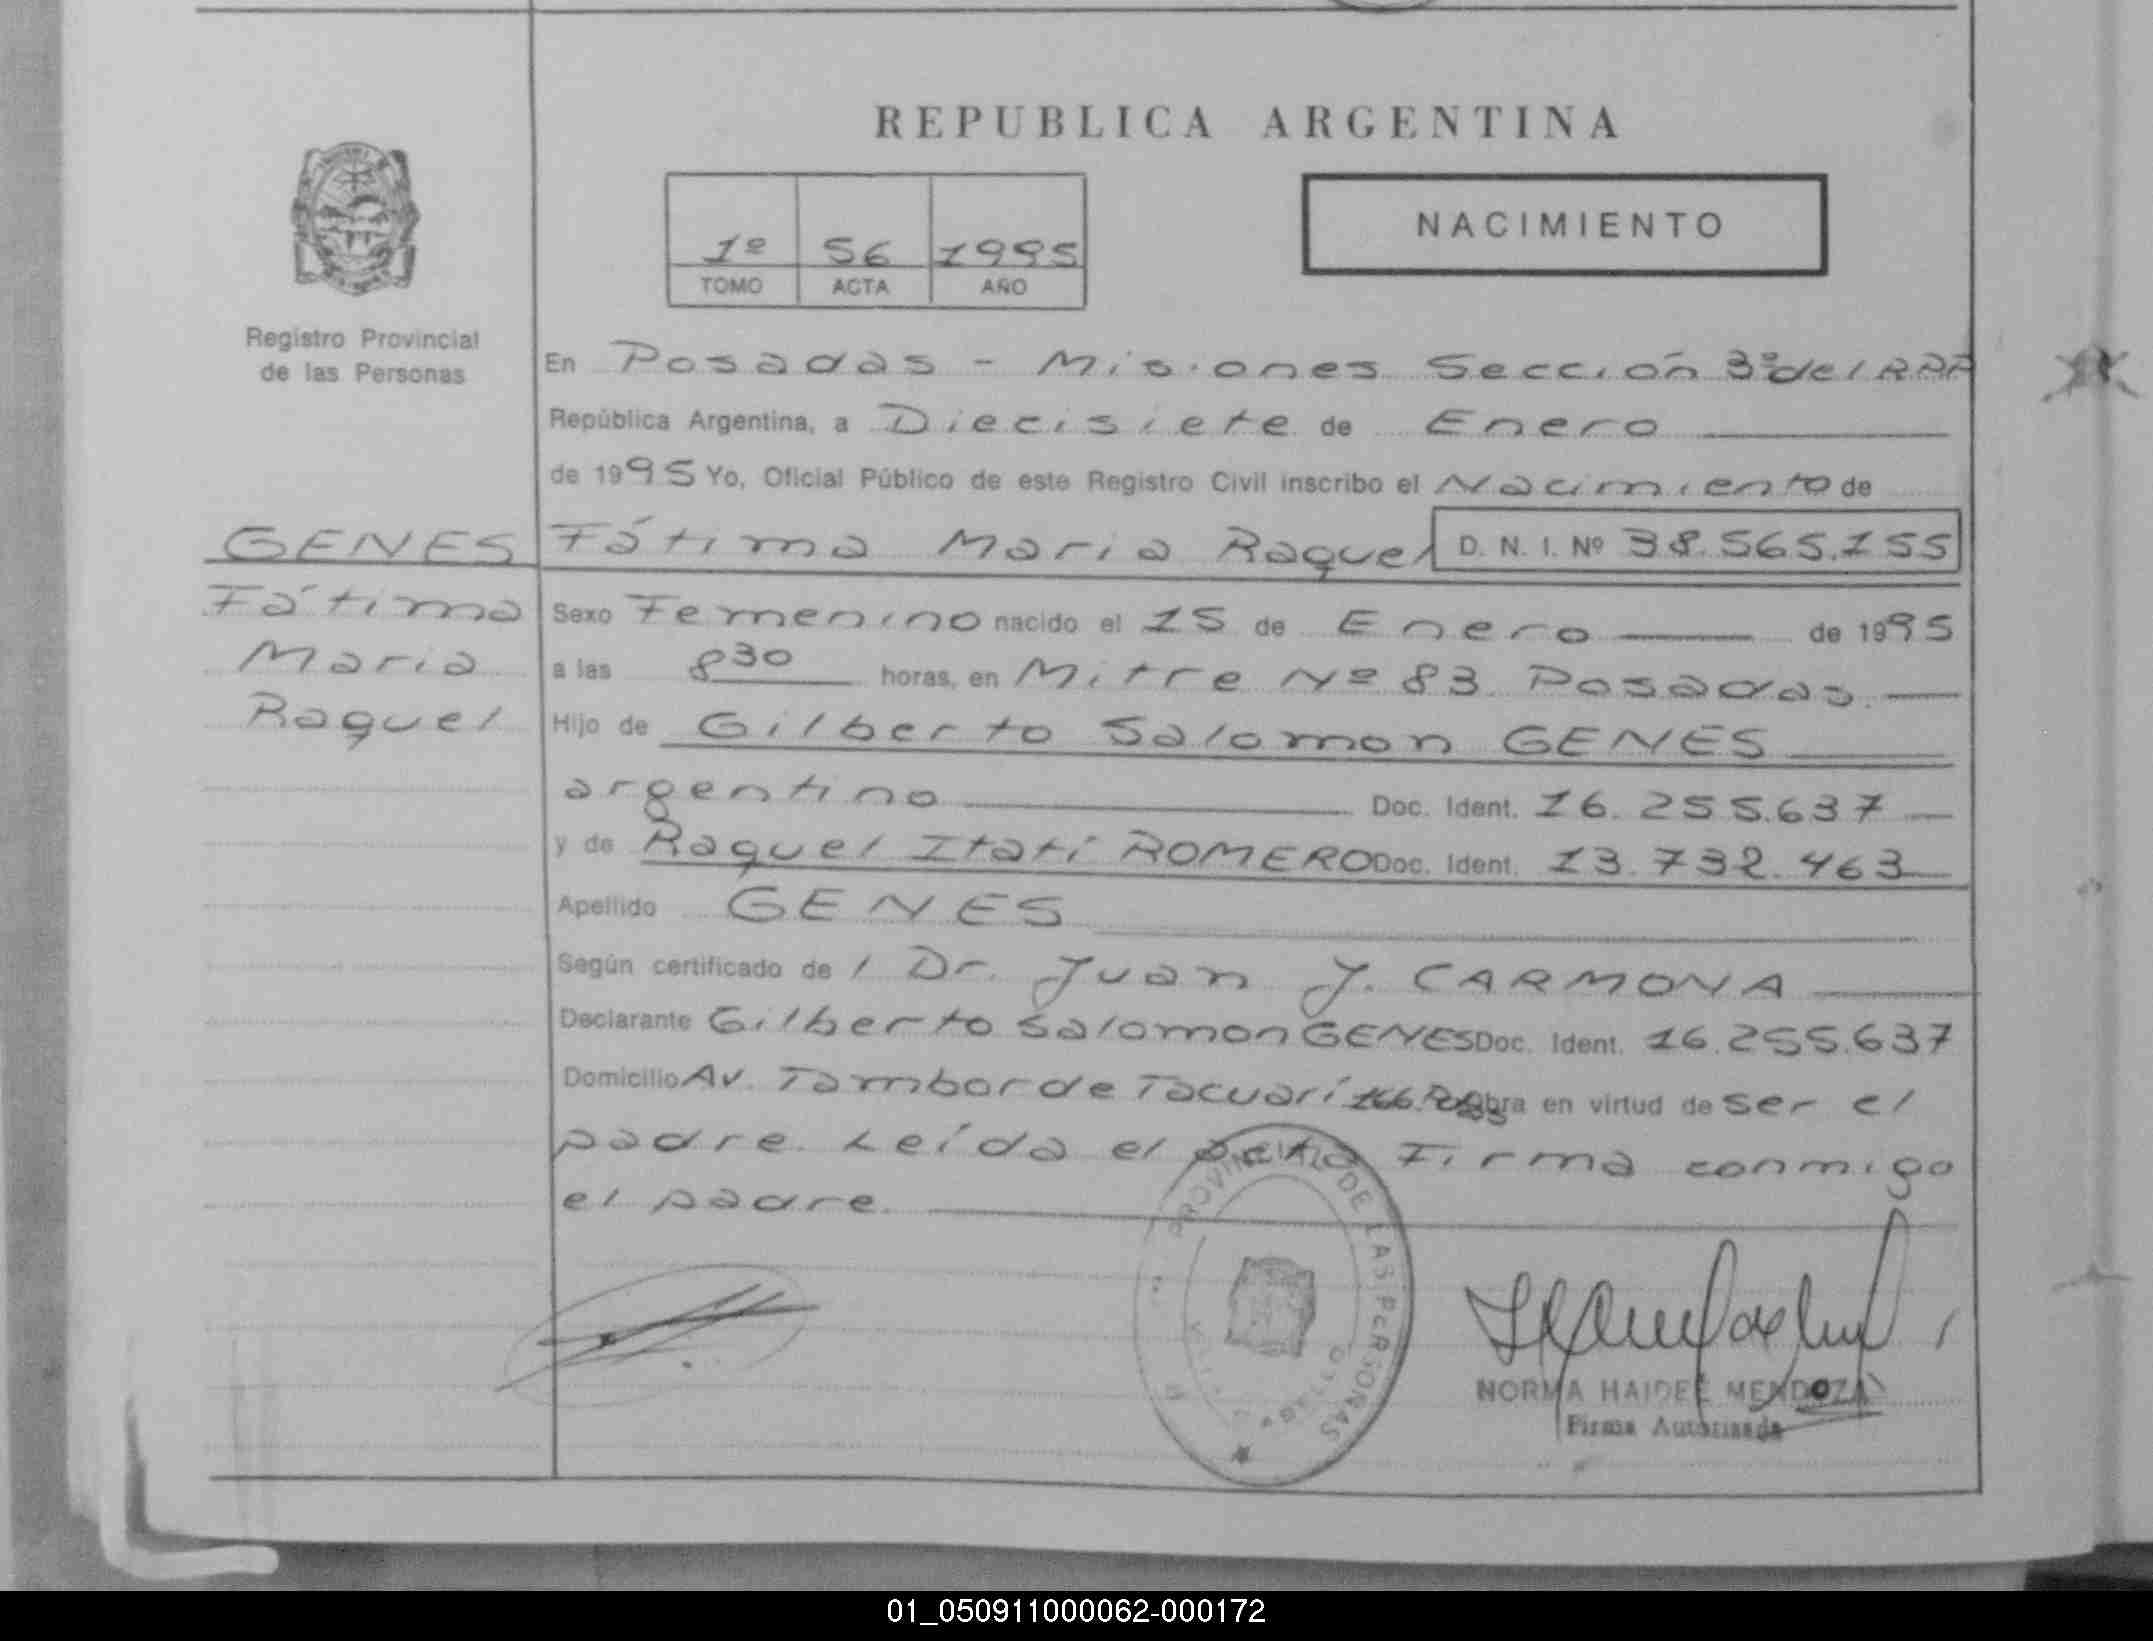 REPUBLICA ARGENTINA
1º 56 1995
TOMO ACTA AÑO
NACIMIENTO
Registro Provincial
de las Personas
En Posadas - Misiones Sección 3º del RPP
República Argentina, a Diecisiete de Enero
de 1995 Yo, Oficial Público de este Registro Civil inscribo el Nacimiento de
GENES
Fátima
Maria
Raquel
Fátima Maria Raquel D. N. I. Nº 38.565.155
Sexo Femenino nacido el 15 de Enero de 1995
a las 8 30 horas, en Mitre Nº 83 Posadas.
Hijo de Gilberto Salomon GENES
argentino Doc. Ident. 16.255.637
y de Raquel Itatí ROMERO Doc. Ident. 13.732.463
Apellido GENES
Según certificado de l Dr. Juan J. CARMONA
Declarante Gilberto Salomon GENES Doc. Ident. 16.255.637
Domicilio Av. Tambor de Tacuarí Obra en virtud de ser el
padre. Leída el acta Firma conmigo
el padre.
PROVINCIAL DE LAS PERSONAS
NORMA HAIDEE MENDOZA
Firma Autorizada
01_050911000062-000172